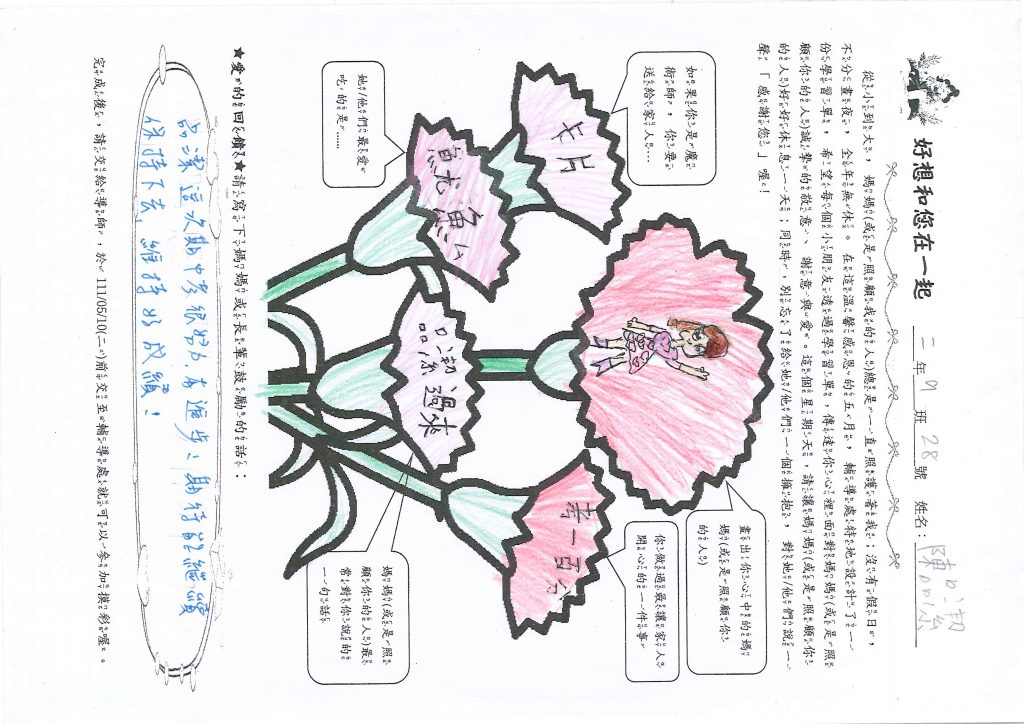 好想和您在一起 二年9班28號 姓名：陳品潔
從小到大，媽媽(或是照顧我的人)總是一直照護著我；沒有假日，
不分晝夜，全年無休。在這溫馨感恩的五月，輔導處特地設計了一
份學習單，希望每個小朋友透過學習單，傳達你心裡面對媽媽(或是照
顧你的人)誠摯的敬意、謝意與愛。這個星期天，請讓媽媽(或是照顧你
的人)好好休息一天，同時，別忘了給她/他們一個擁抱，對她/他們說一
聲「感謝您」喔！
如果你是魔
術師，你要
送給家人…
卡片
畫出你心中的媽
媽(或是照顧你
的人)
她/他們最愛
吃的是……
魚
你做過最讓家人
開心的一件事
考一百分
品潔過來
媽媽(或是照
顧你的人)最
常對你說的
一句話
★愛的回饋★請寫下媽媽或長輩鼓勵的話：
品潔這次期中考很努力有進步，期待能繼續
保持下去，維持好成績！
完成後，請交給導師，於111/05/10(二)前交至輔導處就可以參加摸彩喔。